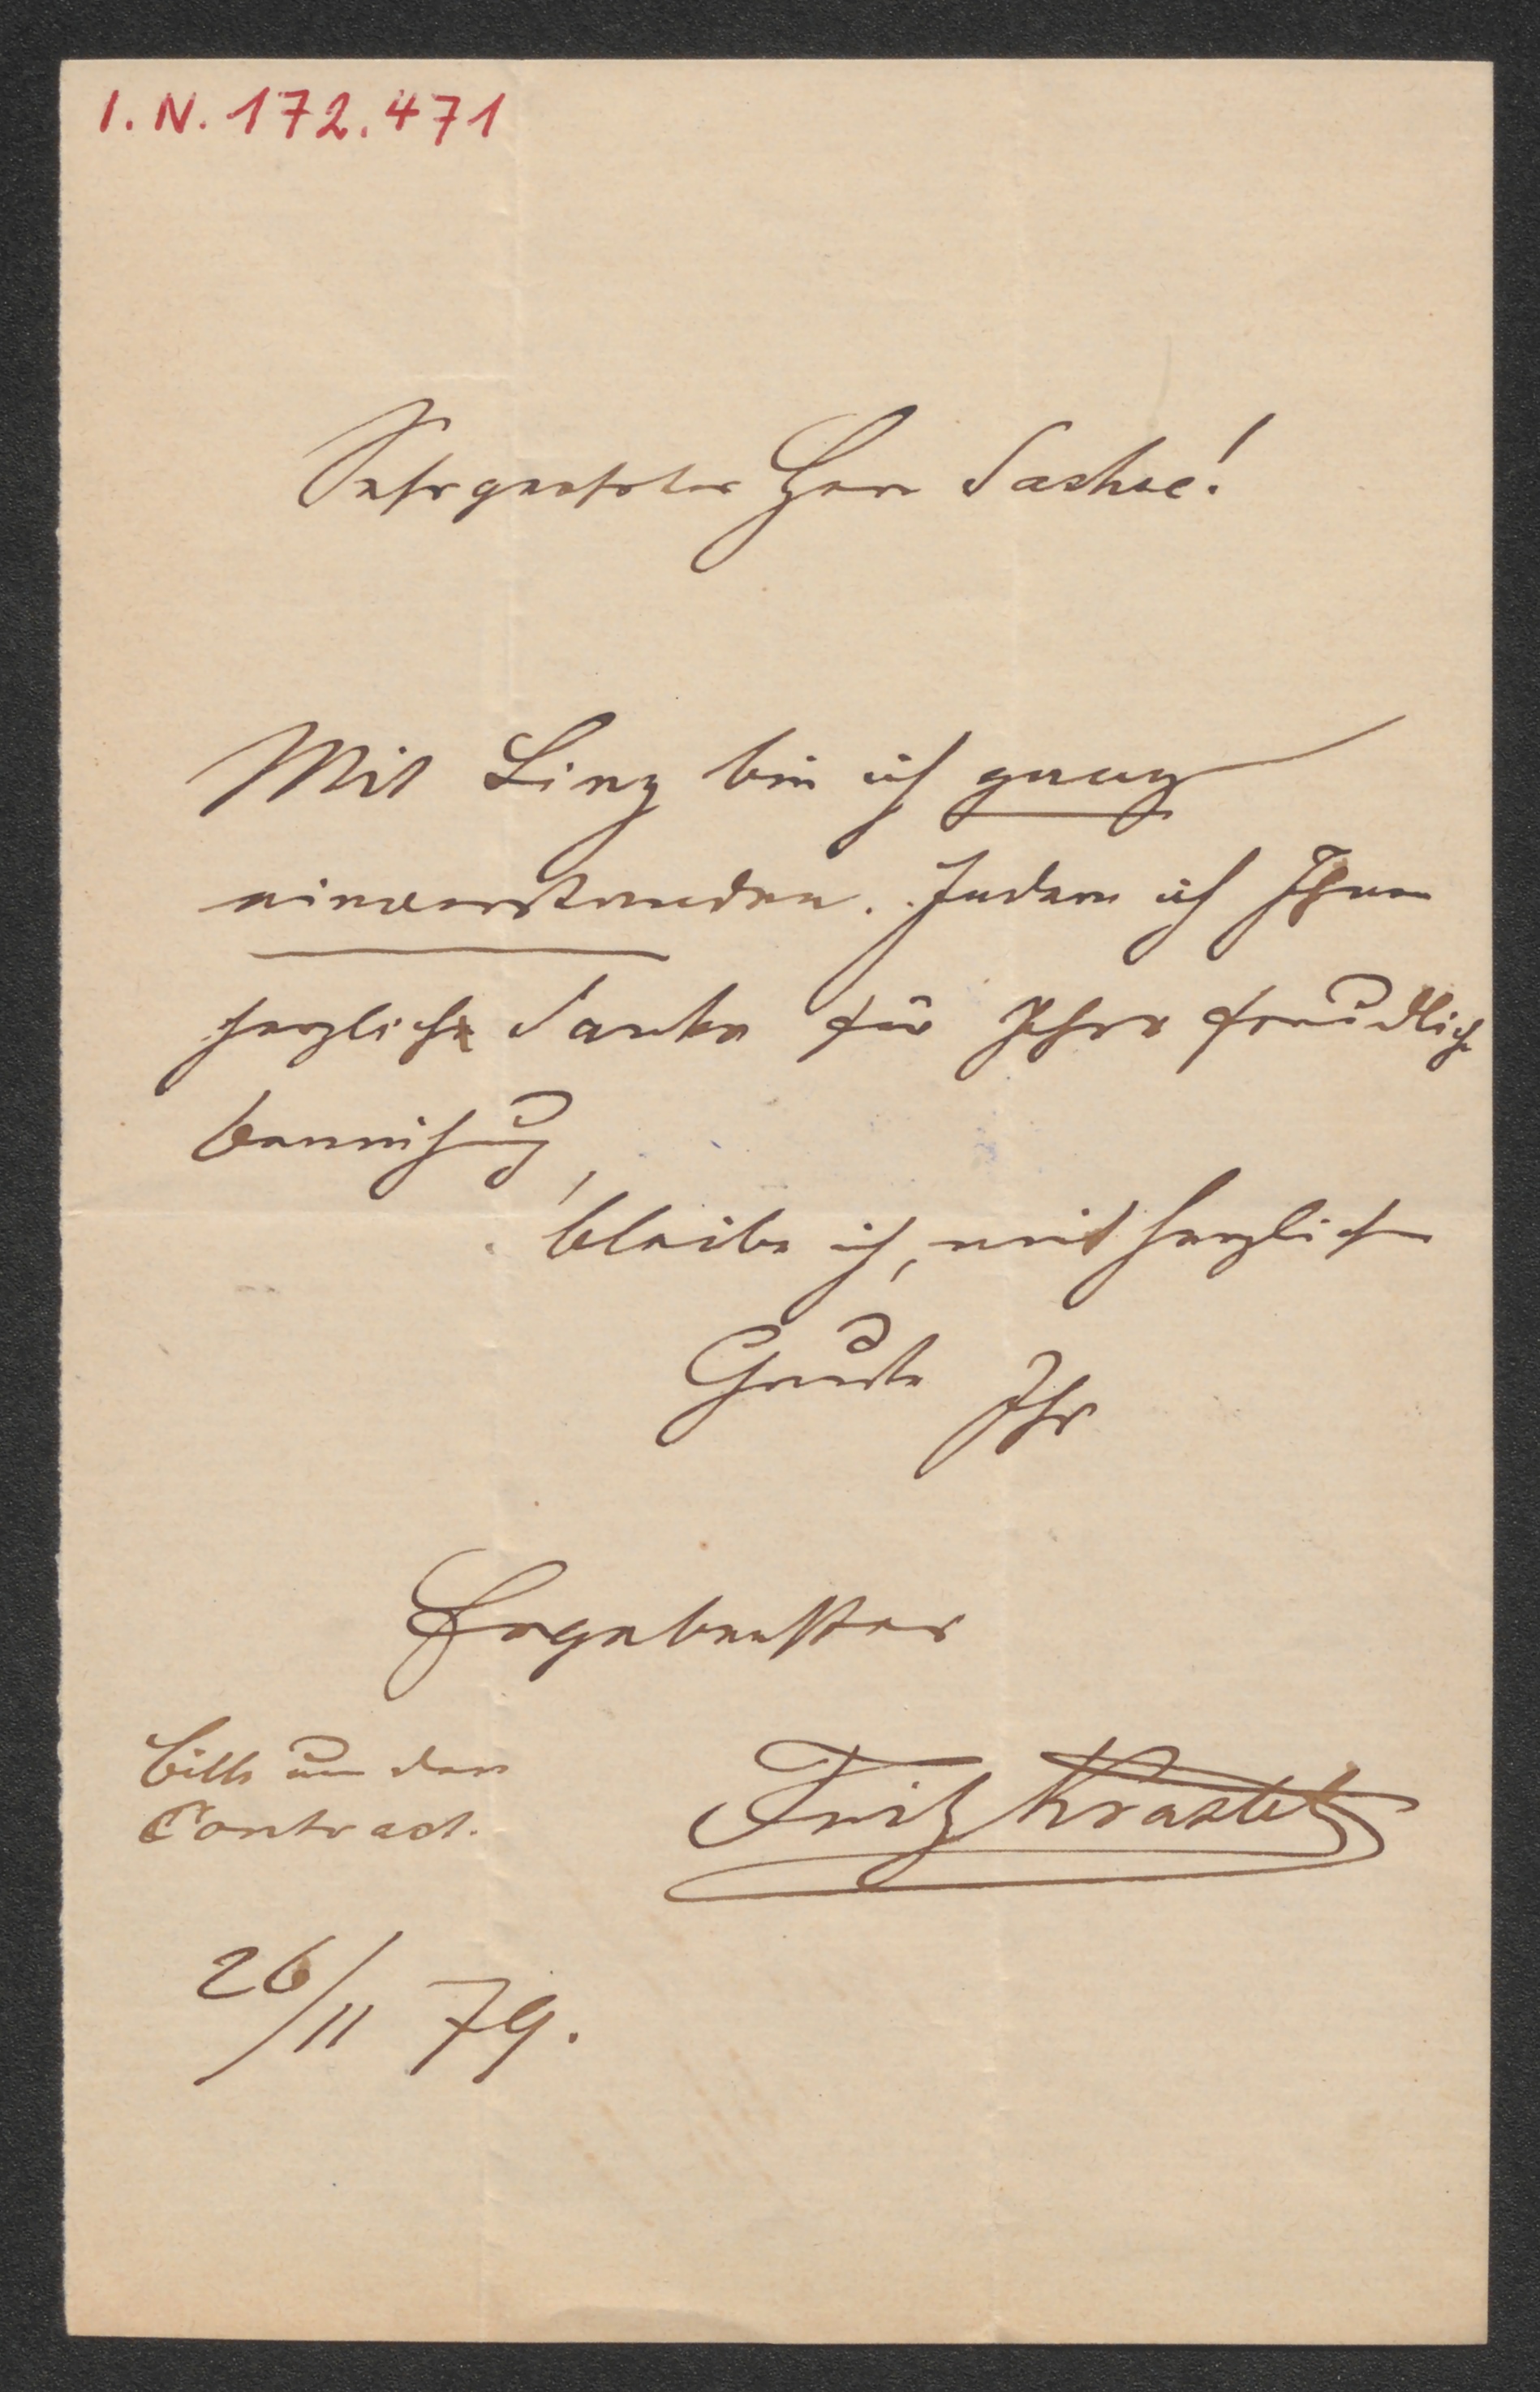 I.N. 172.471
Sehrgeehrter Herr Sachse!
Mit Linz bin ich ganz
einverstanden. Indem ich Ihnen
herzlich danke für Ihre freundlich
Bemühung,
bleibe ich, mit herzlichen
Gruße Ihr
Ergebenster
bitte um den
Contract.
Fritz Krastel
26/11 79.